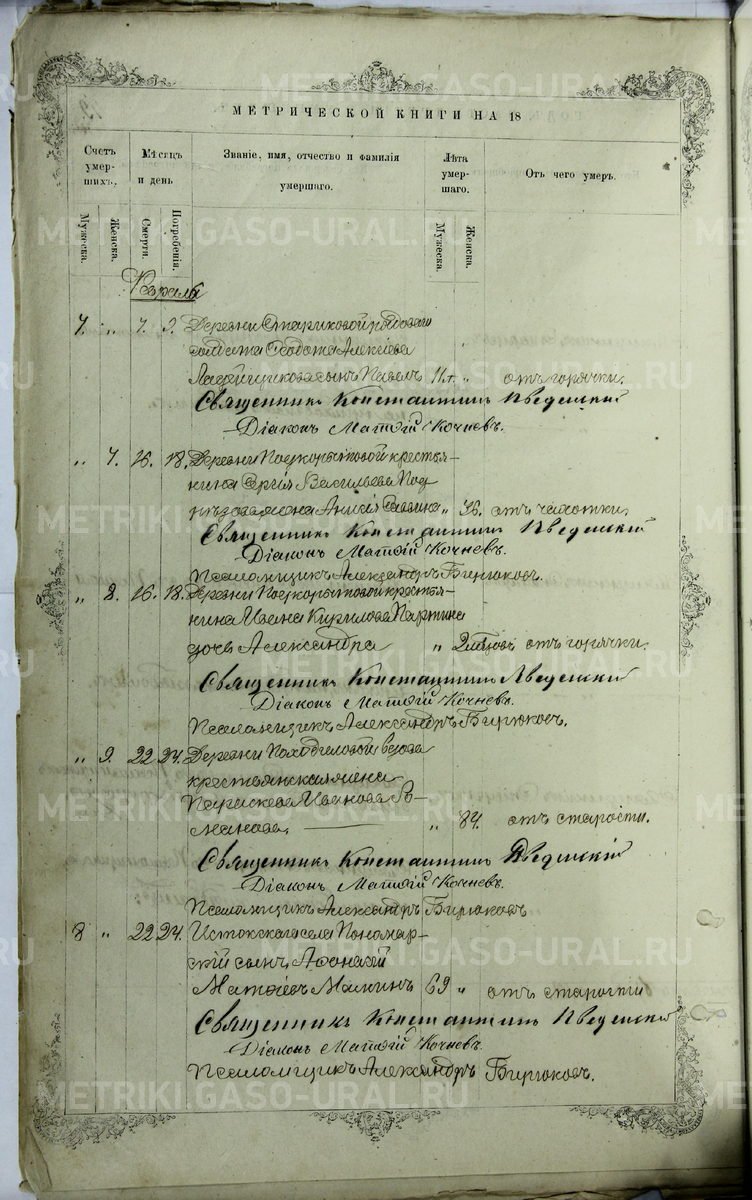 МЕТРИЧЕСКОЙ КНИГИ НА 18
Счетъ умер-шихъ.
Мѣсяцъ и день
Званіе, имя, отчество и фамилія умершаго.
Лѣта умер-шаго.
Отъ чего умеръ.
Мужеска. Женска. Смерти. Погребенія. Мужеска. Женска.
Февраль
7. „ 7. 9. Деревни Стариковой рядоваго
солдата Ѳеодота Алексѣева
сынъ Павелъ 11л. „ отъ горячки.
Священникъ Константинъ Введенскій
Діаконъ Матѳій Кочневъ.
„ 7. 16. 18. Деревни Подкорытовой кресть-
янина Сергія Васильева Под
жена Анисія „ 36. отъ чахотки.
Священникъ Константинъ Введенскій
Діаконъ Матѳій Кочневъ.
Псаломщикъ Александръ Бирюковъ.
„ 8. 16. 18. Деревни Подкорытовой крестья-
нина Ивана Кирилова Партина
дочь Александра „ 2 отъ горячки.
Священникъ Константинъ Введенскій
Діаконъ Матѳій Кочневъ.
Псаломщикъ Александръ Бирюковъ.
„ 9. 22 24. Деревни Походиловой вдова
крестьянская жена
Параскева Иванова Ро-
манова. „ 84. отъ старости.
Священникъ Константинъ Введенскій
Діаконъ Матѳій Кочневъ.
Псаломщикъ Александръ Бирюковъ
8 „ 22 24. Истокскаго села Пономар-
скій сынъ Аѳонасій
Матѳіевъ Малкинъ 69 „ отъ старости
Священникъ Константинъ Введенскій
Діаконъ Матѳій Кочневъ.
Псаломщикъ Александръ Бирюковъ.
METRIKI.GASO-URAL.RU